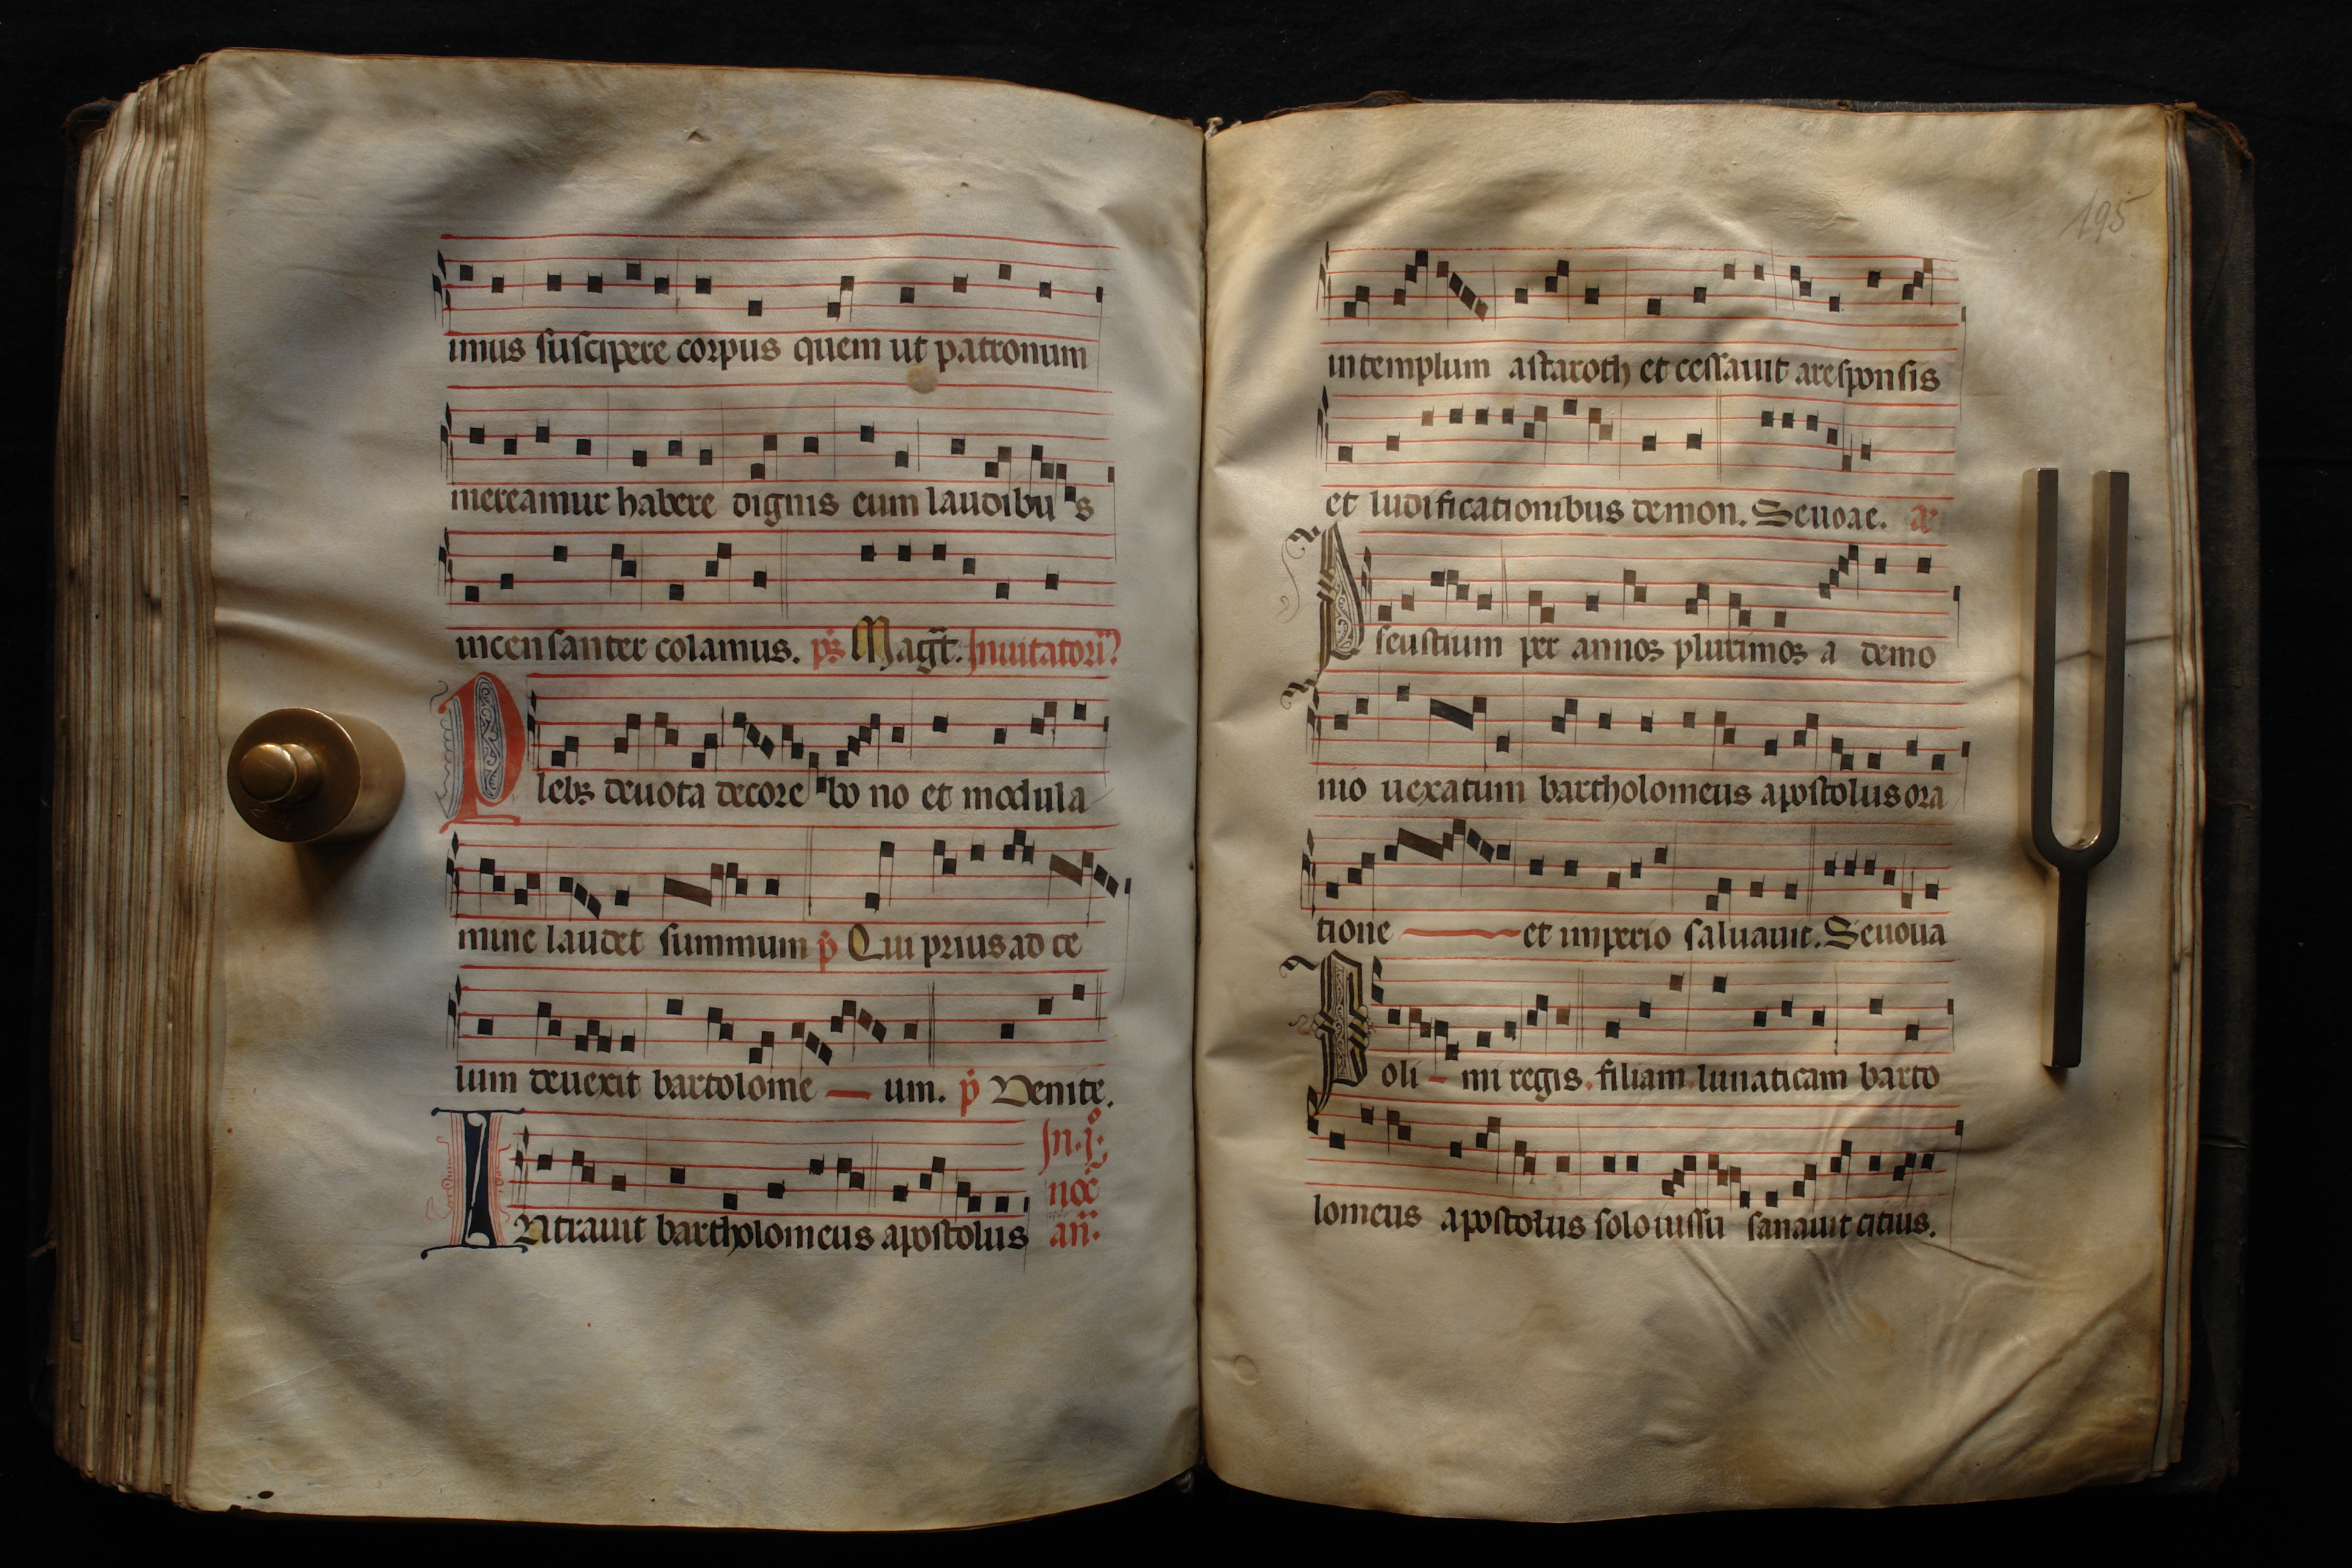 imus suscipere corpus quem ut patronum
mereamur habere dignis eum laudibu s
incensanter colamus. ps Magt. Inuitatori
Plebs deuota decore bo no et modula
mine laudet summum p Qui prius ad ce
lum deuexit bartolome um. p Venite.
Intrauit bartholomeus apostolus
In. j.
noc
an.
195
in templum astaroth et cessauit aresponsis
et ludificationibus demon. Seuoae. a
Pseustium per annos plurimos a demo
nio uexatum bartholomeus apostolus ora
tione et imperio saluauit. Seuoua
Poli mi regis. filiam lunaticam barto
lomeus apostolus solo iussu sanauit citius.